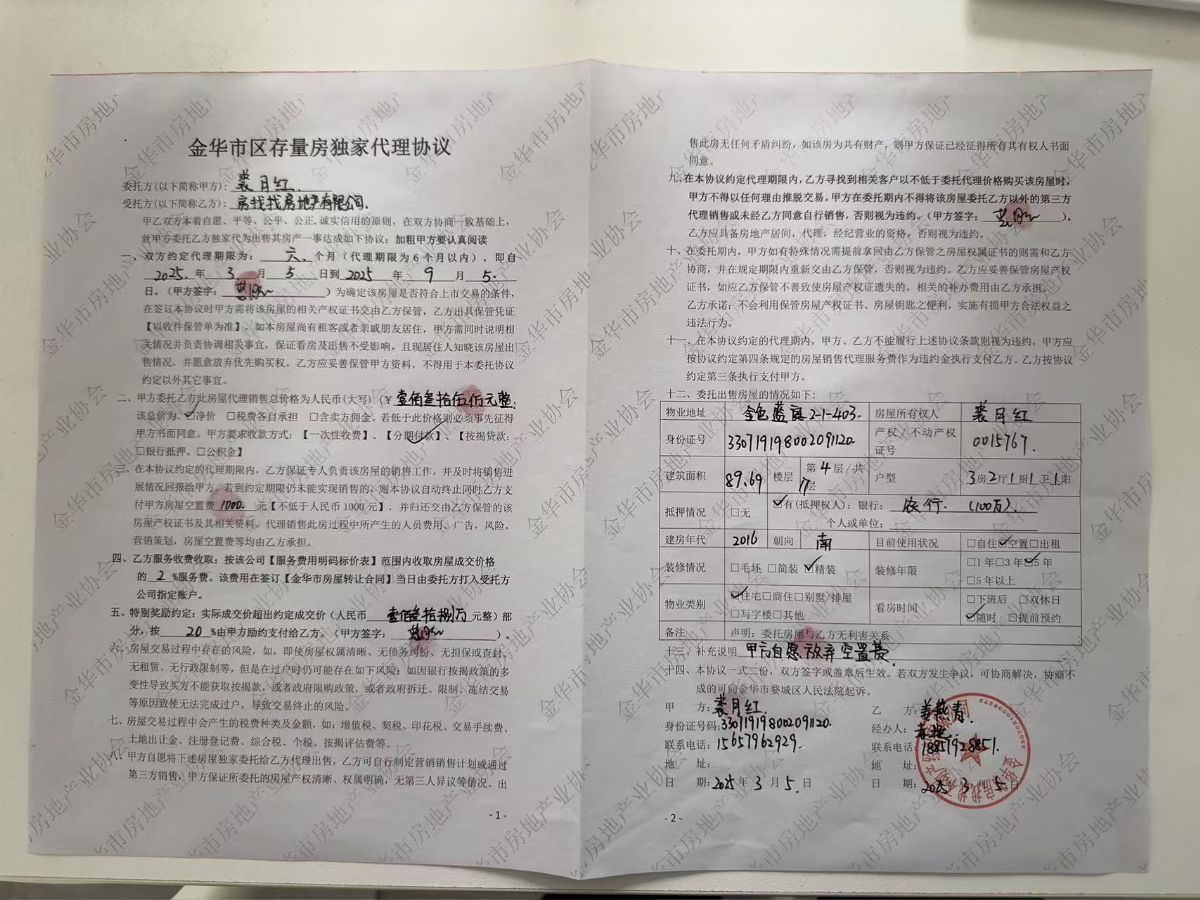 金华市区存量房独家代理协议
委托方(以下简称甲方)：裘月红.
受托方(以下简称乙方)：房找找房地产有限公司.
甲乙双方本着自愿、平等、公平、公正,诚实信用的原则，在双方协商一致基础上，
就甲方委托乙方独家代为出售其房产一事达成如下协议：加粗甲方要认真阅读
一、双方约定代理期限为： 六. 个月（代理期限为6个月以内），即自
2025. 年 3 月 5 日到 2025 年 9 月 5.
日。（甲方签字： ）为确定该房屋是否符合上市交易的条件，
在签订本协议时甲方需将该房屋的相关产权证书交由乙方保管，乙方出具保管凭证
【以收件保管单为准】，如本房屋尚有租客或者亲戚朋友居住，甲方需同时说明相
关情况并负责协调相关事宜，保证看房及出售不受影响，且现居住人知晓该房屋出
售情况，并愿意放弃优先购买权。乙方应妥善保管甲方资料，不得用于本委托协议
约定以外其它事宜。
二、甲方委托乙方此房屋代理销售总价格为人民币(大写)（¥ 壹佰叁拾伍仟元整.
该总价为、☑净价 □税费各自承担 □含卖方佣金。若低于此价格则必须事先征得
甲方书面同意。甲方要求收款方式：【一次性收费】、【分期付款】、【按揭贷款：
□银行抵押、□公积金】
三、在本协议约定的代理期限内，乙方保证专人负责该房屋的销售工作，并及时将销售进
展情况回报给甲方。若到约定期限仍未能实现销售的，则本协议自动终止同时乙方支
付甲方房屋空置费 1000. 元【不低于人民币1000元】，并归还交由乙方保管的该
房屋产权证书及其相关资料。代理销售此房过程中所产生的人员费用、广告，风险，
营销策划，房屋空置费等均由乙方承担。
四、乙方服务收费收取：按该公司【服务费用明码标价表】范围内收取房屋成交价格
的 2 %服务费。该费用在签订【金华市房屋转让合同】当日由委托方打入受托方
公司指定账户。
五、特别奖励约定：实际成交价超出约定成交价（人民币 壹佰叁拾捌万 元整）部
分，按 20 %由甲方励约支付给乙方。（甲方签字： ）。
六、房屋交易过程中存在的风险，如，即使房屋权属清晰、无债务纠纷、无担保或查封、
无租赁、无行政限制等，但是在过户时仍可能存在如下风险：如因银行按揭政策的多
变性导致买方不能获取按揭款，或者政府限购政策，或者政府拆迁、限制、冻结交易
等原因致使无法完成过户，导致交易终止的风险。
七、房屋交易过程中会产生的税费种类及金额，如：增值税、契税、印花税、交易手续费、
土地出让金、注册登记费、综合税、个税。按揭评估费等。
八、甲方自愿将下述房屋独家委托给乙方代理出售，乙方可自行制定营销销售计划或通过
第三方销售，甲方保证所委托的房屋产权清晰、权属明确，无第三人异议等情况，出
-1-
售此房无任何矛盾纠纷，如该房为共有财产，则甲方保证已经征得所有其有权人书面
同意。
九、在本协议约定代理期限内,乙方寻找到相关客户以不低于委托代理价格购买该房屋时，
甲方不得以任何理由推脱交易。甲方在委托期内不得将该房屋委托乙方以外的第三方
代理销售或未经乙方同意自行销售，否则视为违约。（甲方签字： ）。
乙方应具备房地产居间，代理；经纪营业的资格，否则视为违约。
十、在委托期内，甲方如有特殊情况需提前拿回由乙方保管之房屋权属证书的则需和乙方
协商，并在规定期限内重新交由乙方保管，否则视为违约。乙方应妥善保管房屋产权
证书，如应乙方保管不善致使房屋产权证遗失的，相关的补办费用由乙方承担。
乙方承诺：不会利用保管房屋产权证书、房屋钥匙之便利，实施有损甲方合法权益之
违法行为。
十一、在本协议约定的代理期内，甲方、乙方不能履行上述协议条款则视为违约，甲方应
按协议约定第四条规定的房屋销售代理服务费作为违约金执行支付乙方。乙方按协议
约定第三条执行支付甲方。
十二、委托出售房屋的情况如下：
物业地址 金色蓝庭2-1-403. 房屋所有权人 裘月红
身份证号 330719198002091120 产权/不动产权证号 0015767.
建筑面积 89.69 楼层 第4层/共17层 户型 3房2厅1厨1卫1阳
抵押情况 □无 ☑有(抵押权人)：银行： 农行. (100万).
个人或单位：
建房年代 2016 朝向 南 目前使用状况 □自住☑空置□出租
装修情况 □毛坯 □简装 ☑精装 装修年限 □1年□3年☑5年
□5年以上
物业类别 ☑住宅□商住□别墅/排屋
□写字楼□其他 看房时间 □下班后 □双休日
☑随时 □提前预约
备注 声明：委托房屋与乙方无利害关系
十三、补充说明 甲方自愿放弃空置费.
十四、本协议一式二份，双方签字或盖章后生效。若双方发生争议，可协商解决，协商不
成的可向金华市婺城区人民法院起诉。
甲 方：裘月红. 乙 方：姜燕青
身份证号码：330719198002091120. 经办人：
联系电话：15657962929. 联系电话：18857928851.
地 址： 地 址：
日 期：2025年 3 月 5. 日 日 期：2025 3 月 5 日
-2-